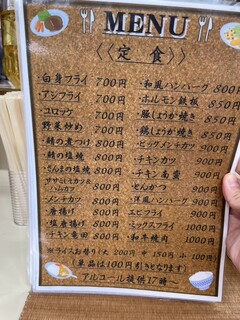 MENU
《定食》
・白身フライ 700円
・アジフライ 700円
・コロッケ 700円
・野菜炒め 700円
・鯖の煮つけ 800円
・鯖の塩焼 800円
・さんまの塩焼 800円
・ササミしそカツ&
ハムカツ 800円
・メンチカツ 800円
・唐揚げ 800円
・塩唐揚げ 800円
・チキン竜田 800円
・和風ハンバーグ 800円
・ホルモン鉄板 850円
・豚しょうが焼き 850円
・鶏しょうが焼き 850円
・ビッグメンチカツ 900円
・チキンカツ 900円
・チキン南蛮 900円
・とんかつ 900円
・洋風ハンバーグ 900円
・エビフライ 900円
・ミックスフライ 1000円
・和牛焼肉 1000円
※ライスお替り!大 200円 中 150円 小 100円
(単品は100円引きとなります)
アルコール提供17時〜